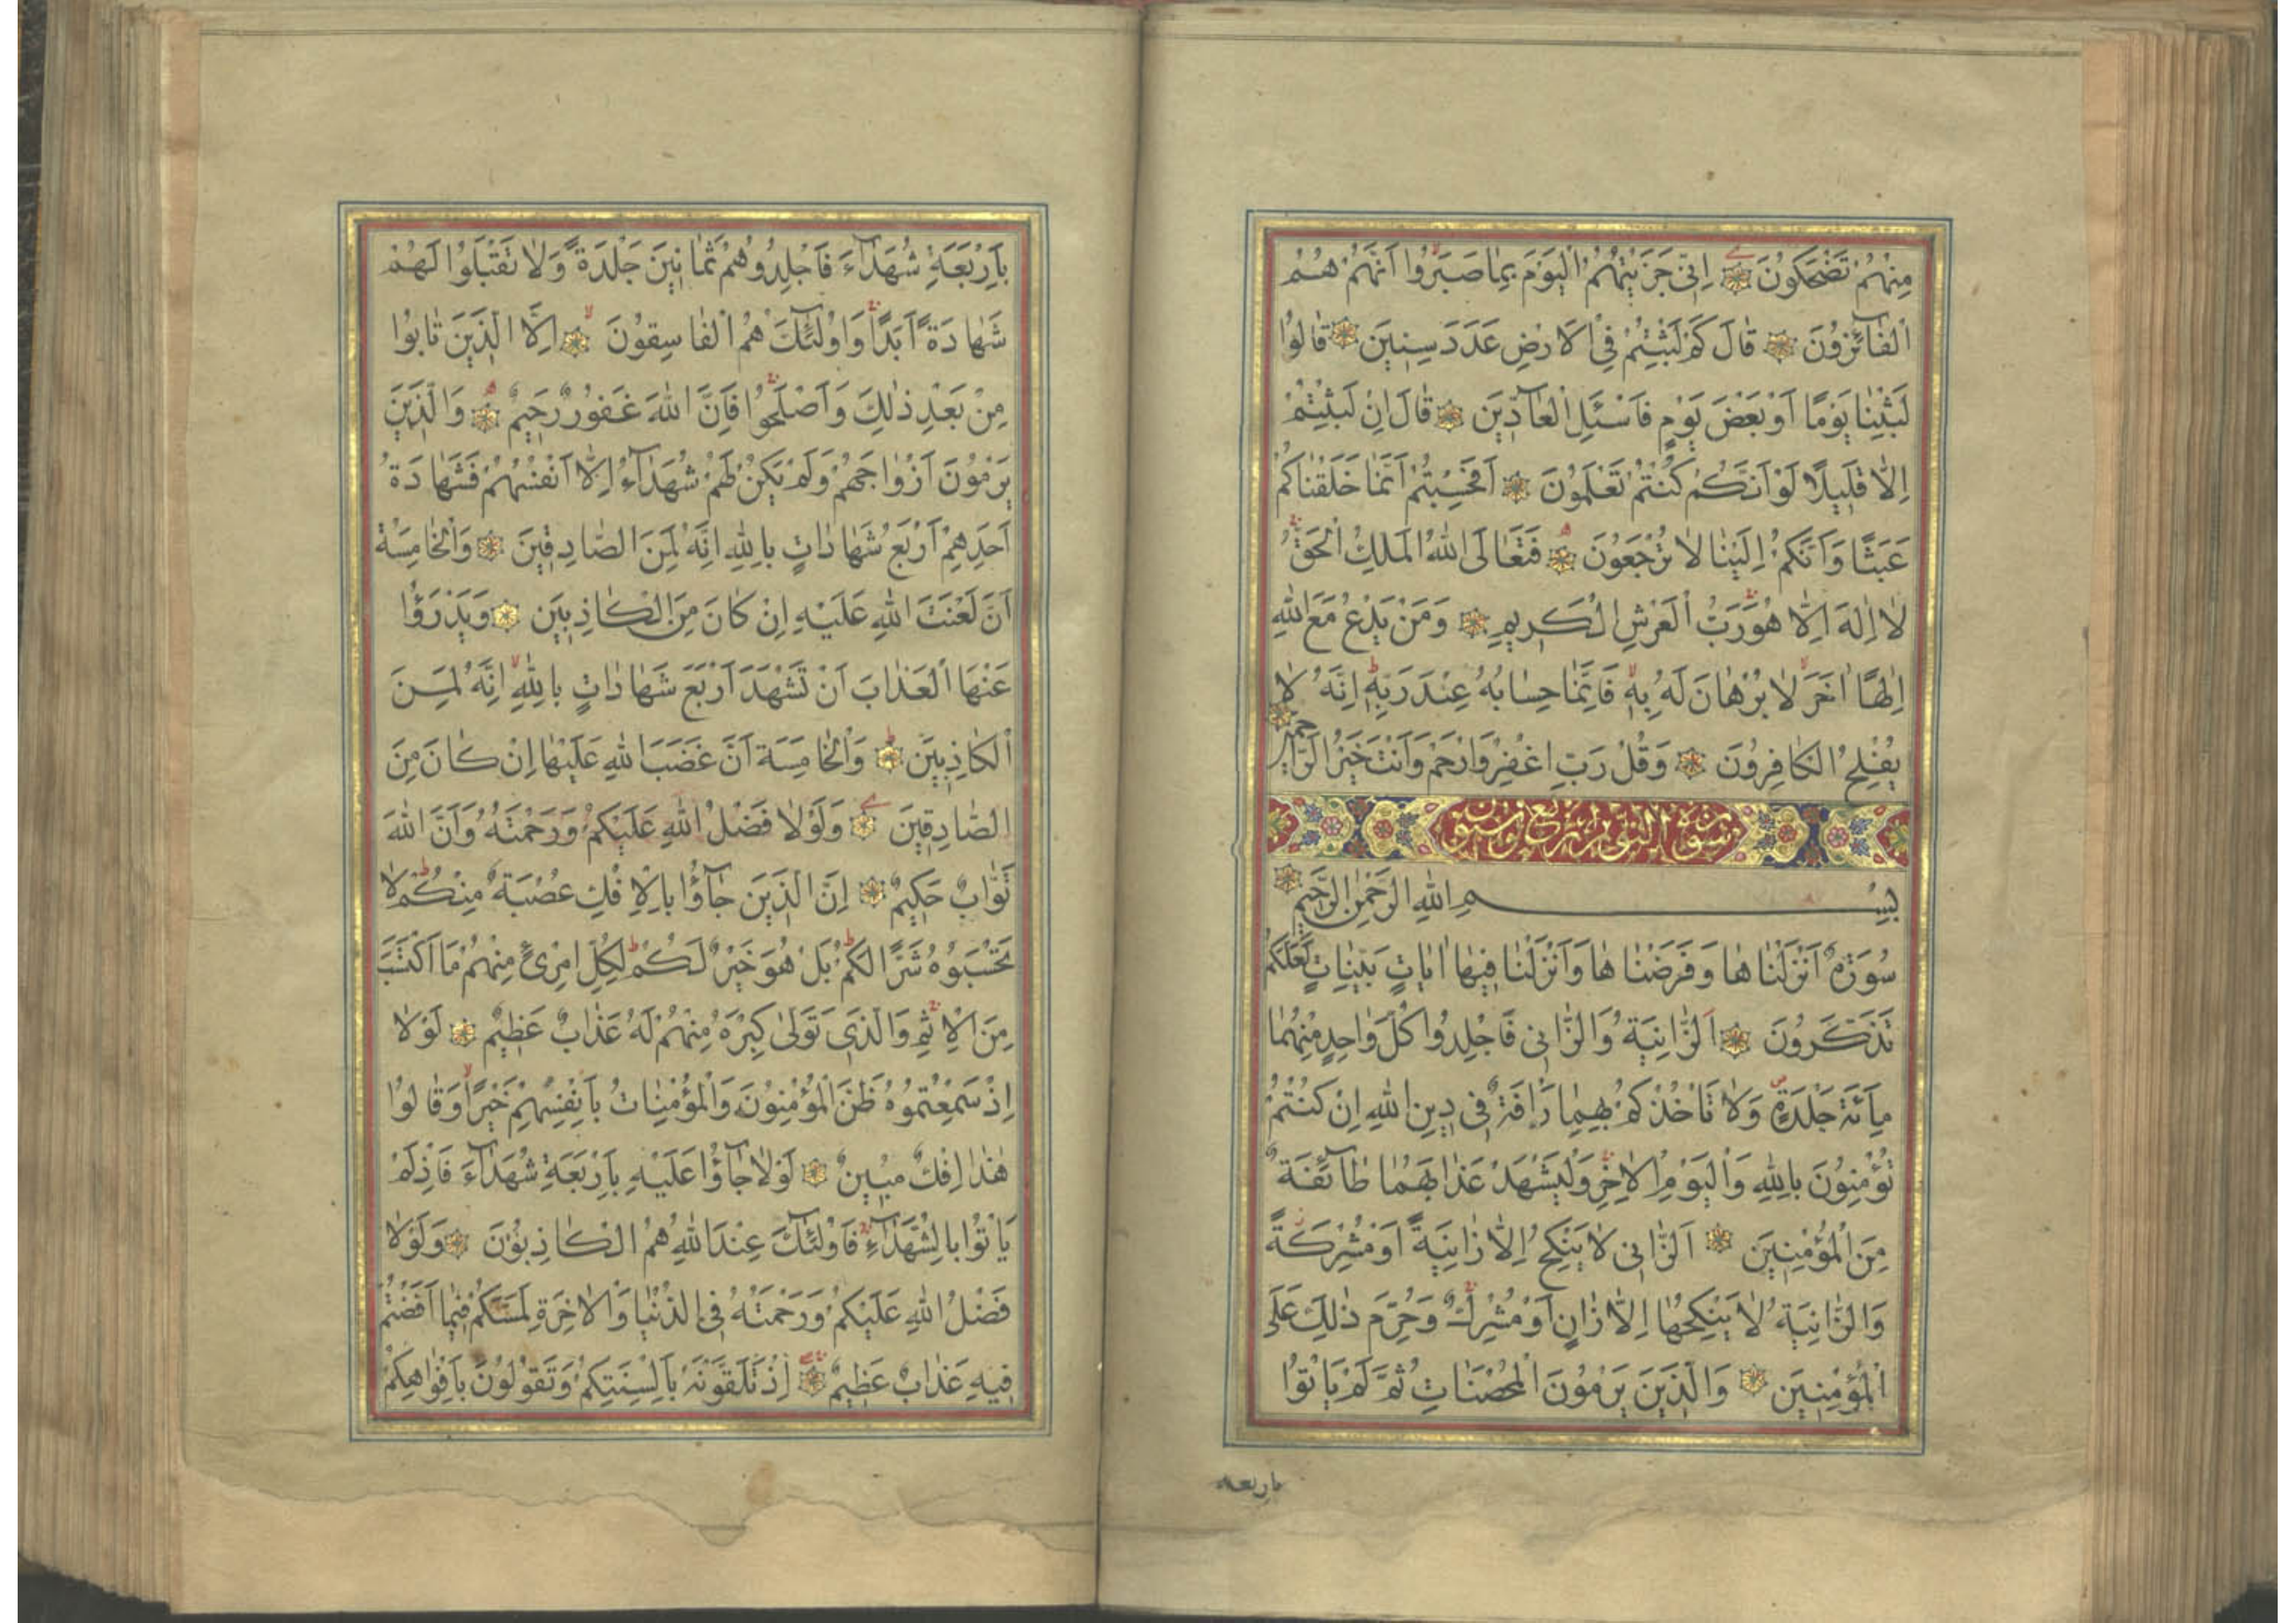 مِنْهُمْ تَضْحَكُونَ اِنّٖى جَزَيْتُهُمُ الْيَوْمَ بِمَا صَبَرُوا اَنَّهُمْ هُمُ
الْفَائِزُونَ قَالَ كَمْ لَبِثْتُمْ فِى الْاَرْضِ عَدَدَ سِنِينَ قَالُوا
لَبِثْنَا يَوْمًا اَوْ بَعْضَ يَوْمٍ فَاسْئَلِ الْعَادِّينَ قَالَ اِنْ لَبِثْتُمْ
اِلَّا قَلِيلًا لَوْ اَنَّكُمْ كُنْتُمْ تَعْلَمُونَ اَفَحَسِبْتُمْ اَنَّمَا خَلَقْنَاكُمْ
عَبَثًا وَاَنَّكُمْ اِلَيْنَا لَا تُرْجَعُونَ فَتَعَالَى اللّٰهُ الْمَلِكُ الْحَقُّ
لَا اِلٰهَ اِلَّا هُوَ رَبُّ الْعَرْشِ الْكَرِيمِ وَمَنْ يَدْعُ مَعَ اللّٰهِ
اِلٰهًا اٰخَرَ لَا بُرْهَانَ لَهُ بِهٖ فَاِنَّمَا حِسَابُهُ عِنْدَ رَبِّهٖ اِنَّهُ لَا
يُفْلِحُ الْكَافِرُونَ وَقُلْ رَبِّ اغْفِرْ وَارْحَمْ وَاَنْتَ خَيْرُ الرَّاحِمِينَ
بِسْمِ اللّٰهِ الرَّحْمٰنِ الرَّحِيمِ
سُورَةٌ اَنْزَلْنَاهَا وَفَرَضْنَاهَا وَاَنْزَلْنَا فِيهَا اٰيَاتٍ بَيِّنَاتٍ لَعَلَّكُمْ
تَذَكَّرُونَ اَلزَّانِيَةُ وَالزَّانِى فَاجْلِدُوا كُلَّ وَاحِدٍ مِنْهُمَا
مِأَئَةَ جَلْدَةٍ وَلَا تَاْخُذْكُمْ بِهِمَا رَاْفَةٌ فِى دِينِ اللّٰهِ اِنْ كُنْتُمْ
تُؤْمِنُونَ بِاللّٰهِ وَالْيَوْمِ الْاٰخِرِ وَلْيَشْهَدْ عَذَابَهُمَا طَائِفَةٌ
مِنَ الْمُؤْمِنِينَ اَلزَّانِى لَا يَنْكِحُ اِلَّا زَانِيَةً اَوْ مُشْرِكَةً
وَالزَّانِيَةُ لَا يَنْكِحُهَا اِلَّا زَانٍ اَوْ مُشْرِكٌ وَحُرِّمَ ذٰلِكَ عَلَى
الْمُؤْمِنِينَ وَالَّذِينَ يَرْمُونَ الْمُحْصَنَاتِ ثُمَّ لَمْ يَاْتُوا
باربعة
بِاَرْبَعَةِ شُهَدَاءَ فَاجْلِدُوهُمْ ثَمَانِينَ جَلْدَةً وَلَا تَقْبَلُوا لَهُمْ
شَهَادَةً اَبَدًا وَاُولٰئِكَ هُمُ الْفَاسِقُونَ اِلَّا الَّذِينَ تَابُوا
مِنْ بَعْدِ ذٰلِكَ وَاَصْلَحُوا فَاِنَّ اللّٰهَ غَفُورٌ رَحِيمٌ وَالَّذِينَ
يَرْمُونَ اَزْوَاجَهُمْ وَلَمْ يَكُنْ لَهُمْ شُهَدَاءُ اِلَّا اَنْفُسُهُمْ فَشَهَادَةُ
اَحَدِهِمْ اَرْبَعُ شَهَادَاتٍ بِاللّٰهِ اِنَّهُ لَمِنَ الصَّادِقِينَ وَالْخَامِسَةُ
اَنَّ لَعْنَتَ اللّٰهِ عَلَيْهِ اِنْ كَانَ مِنَ الْكَاذِبِينَ وَيَدْرَؤُا
عَنْهَا الْعَذَابَ اَنْ تَشْهَدَ اَرْبَعَ شَهَادَاتٍ بِاللّٰهِ اِنَّهُ لَمِنَ
الْكَاذِبِينَ وَالْخَامِسَةَ اَنَّ غَضَبَ اللّٰهِ عَلَيْهَا اِنْ كَانَ مِنَ
الصَّادِقِينَ وَلَوْلَا فَضْلُ اللّٰهِ عَلَيْكُمْ وَرَحْمَتُهُ وَاَنَّ اللّٰهَ
تَوَّابٌ حَكِيمٌ اِنَّ الَّذِينَ جَاؤُا بِالْاِفْكِ عُصْبَةٌ مِنْكُمْ لَا
تَحْسَبُوهُ شَرًّا لَكُمْ بَلْ هُوَ خَيْرٌ لَكُمْ لِكُلِّ امْرِئٍ مِنْهُمْ مَا اكْتَسَبَ
مِنَ الْاِثْمِ وَالَّذِى تَوَلّٰى كِبْرَهُ مِنْهُمْ لَهُ عَذَابٌ عَظِيمٌ لَوْلَا
اِذْ سَمِعْتُمُوهُ ظَنَّ الْمُؤْمِنُونَ وَالْمُؤْمِنَاتُ بِاَنْفُسِهِمْ خَيْرًا وَقَالُوا
هٰذَا اِفْكٌ مُبِينٌ لَوْلَا جَاؤُا عَلَيْهِ بِاَرْبَعَةِ شُهَدَاءَ فَاِذْ لَمْ
يَاْتُوا بِالشُّهَدَاءِ فَاُولٰئِكَ عِنْدَ اللّٰهِ هُمُ الْكَاذِبُونَ وَلَوْلَا
فَضْلُ اللّٰهِ عَلَيْكُمْ وَرَحْمَتُهُ فِى الدُّنْيَا وَالْاٰخِرَةِ لَمَسَّكُمْ فِيمَا اَفَضْتُمْ
فِيهِ عَذَابٌ عَظِيمٌ اِذْ تَلَقَّوْنَهُ بِاَلْسِنَتِكُمْ وَتَقُولُونَ بِاَفْوَاهِكُمْ